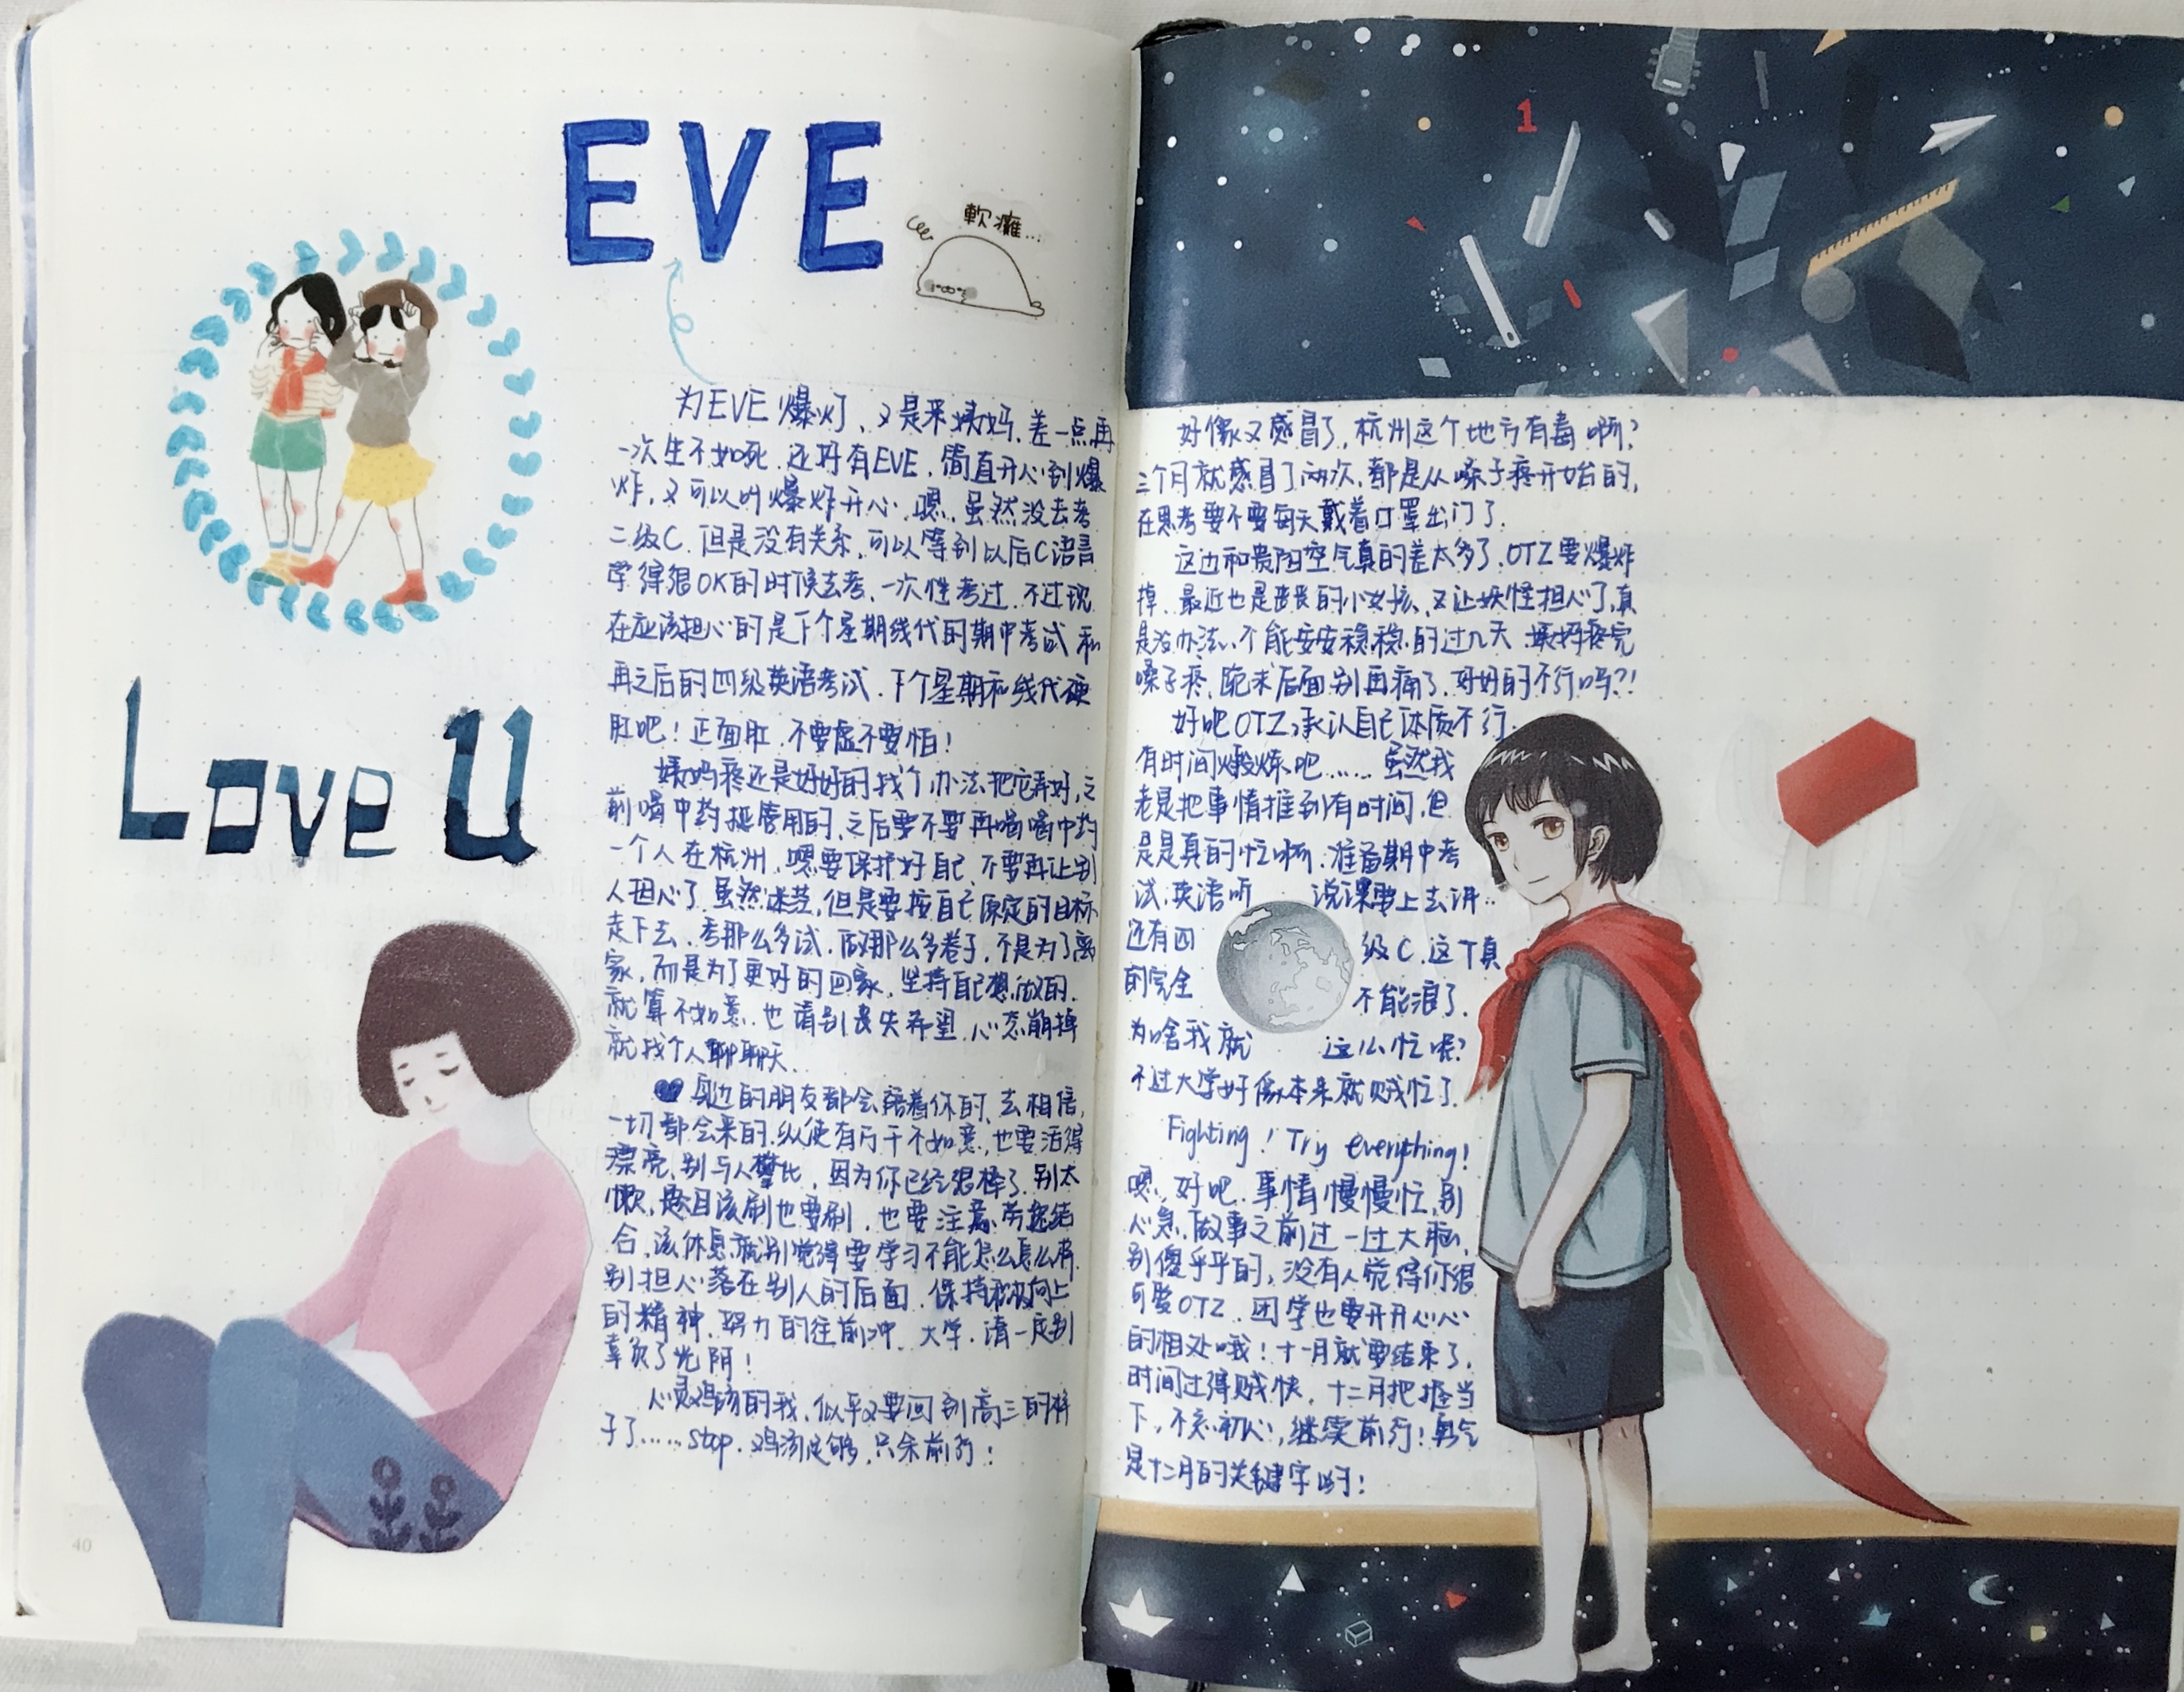 EVE
軟癱...
为EVE爆灯、又是来姨妈、差一点再
一次生不如死.还好有EVE.简直开心到爆
炸,又可以叫爆炸开心.嗯.虽然没去考
二级C.但是没有关系,可以等到以后C语言
学得很OK的时候去考、一次性考过.不过现
在应该担心的是下个星期线代的期中考试和
再之后的四级英语考试.下个星期和线代硬
肛吧!正面肛.不要虚不要怕!
姨妈疼还是好好的找个办法把它弄好,之
前喝中药挺管用的,之后要不要再喝喝中药
一个人在杭州,嗯要保护好自己、不要再让别
人担心了.虽然迷茫,但是要按自己原定的目标
走下去.考那么多试.做那么多卷子,不是为了离
家,而是为了更好的回家.坚持自己想做的.
就算不如意.也请别丧失希望.心态崩掉
就找个人聊聊天.
身边的朋友都会陪着你的、去相信,
一切都会来的.纵使有万千不如意,也要活得
漂亮、别与人攀比,因为你已经很棒了.别太
懒,题目该刷也要刷,也要注意劳逸结
合,该休息就别觉得要学习不能怎么怎么样.
别担心落在别人的后面.保持积极向上
的精神.努力的往前冲.大学.请一定别
辜负了光阴!
心灵鸡汤的我,似乎又要回到高三的样
子了......stop.鸡汤足够,只余前行!
Love U
40
1
好像又感冒了,杭州这个地方有毒啊?
三个月就感冒了两次.都是从嗓子疼开始的,
在思考要不要每天戴着口罩出门了.
这边和贵阳空气真的差太多了.OTZ要爆炸
掉.最近也是丧丧的小女孩、又让妖怪担心了,真
是没办法、不能安安稳稳的过几天.姨妈疼完
嗓子疼.能求后面别再痛了.好好的不行吗?!
好吧OTZ,承认自己体质不行.
有时间煅炼吧......虽然我
老是把事情推到有时间,但
是是真的忙啊.准备期中考
试.英语听 说课要上去讲..
还有四 级C.这个真
的完全 不能浪了.
为啥我就 这么忙呢?
不过大学好像本来就贼忙了.
Fighting! Try everything!
嗯、好吧.事情慢慢忙.别
心急.做事之前过一过大脑,
别傻乎乎的,没有人觉得你很
可爱OTZ.同学也要开开心心
的相处哦!十一月就要结束了.
时间过得贼快,十二月把握当
下,不忘初心,继续前行!勇气
是十二月的关键字哟!